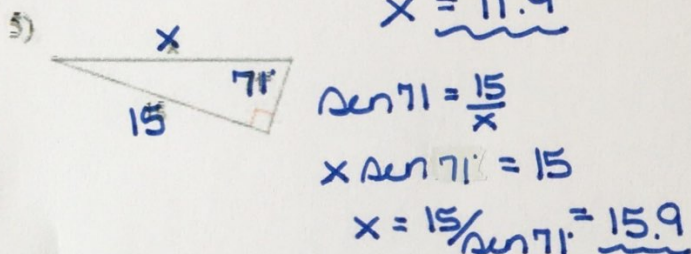 x = 11.9
5)
x
71°
15
sen 71 = 15/x
x sen 71° = 15
x = 15/sen 71° = 15.9